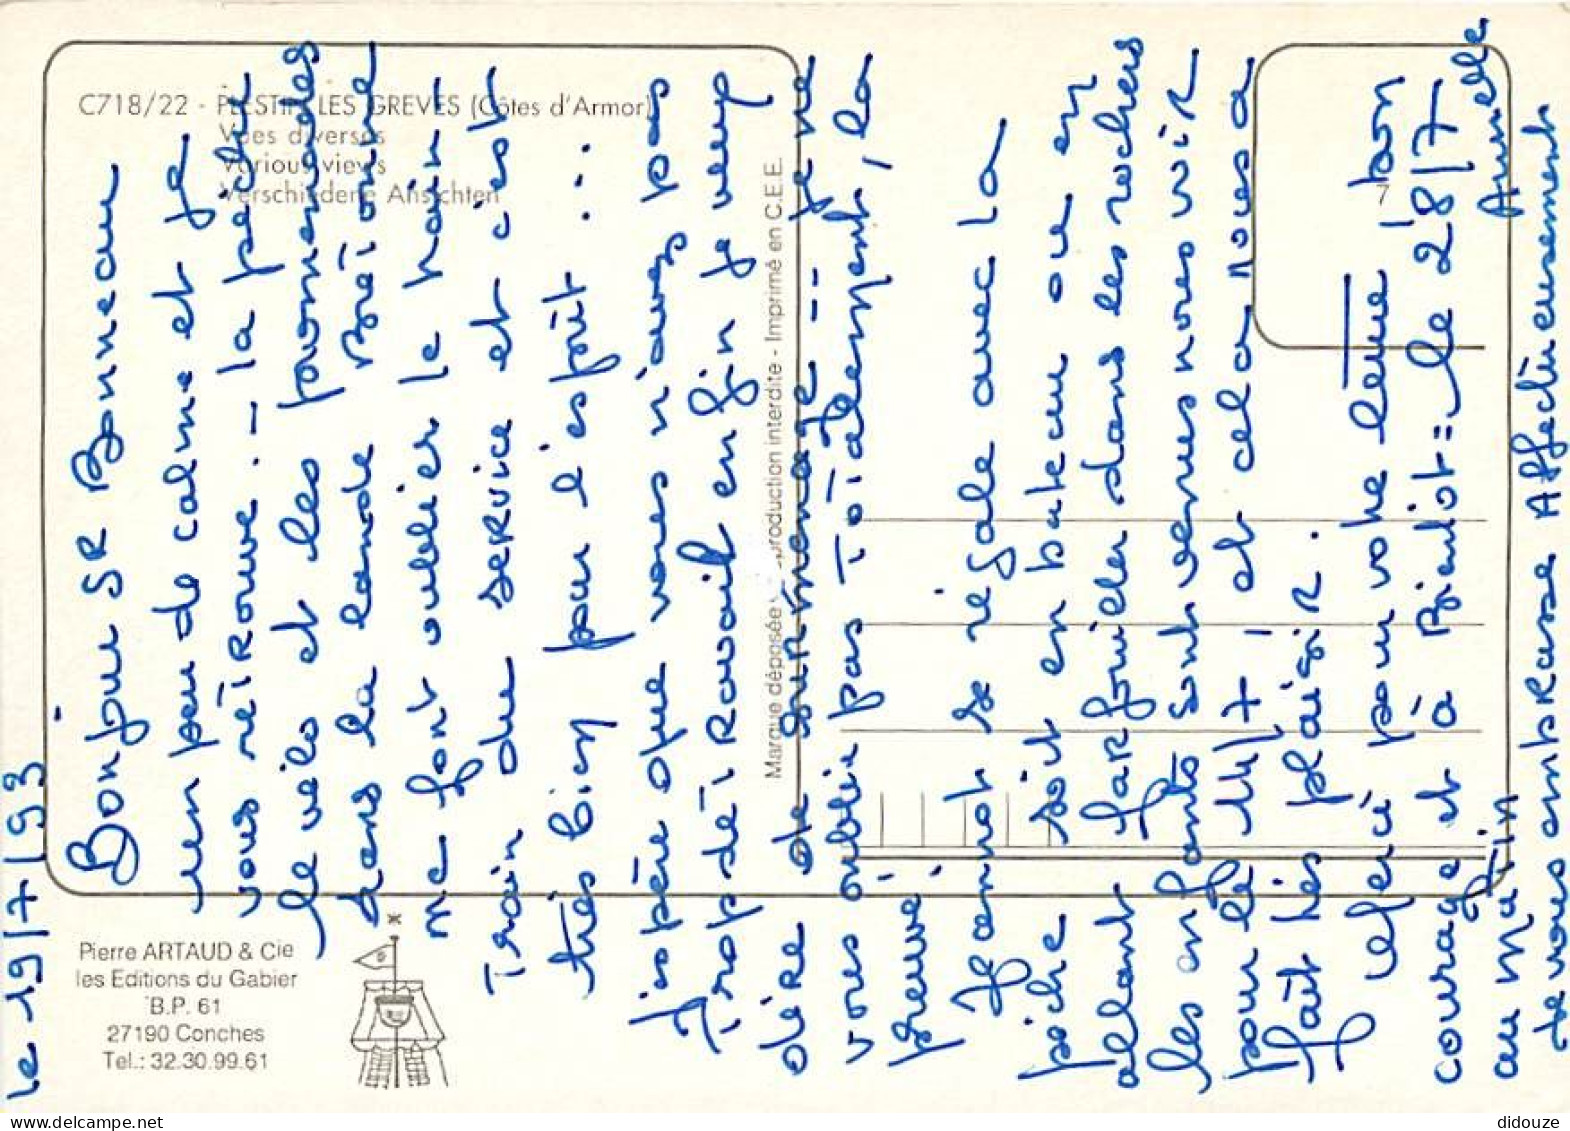 C718/22 - PLESTIN LES GREVES (Côtes d'Armor)
Vues diverses
Various views
Verschiedene Ansichten
Marque déposée - Reproduction interdite - Imprimé en C.E.E.
Pierre ARTAUD & Cie
les Editions du Gabier
B.P. 61
27190 Conches
Tel.: 32.30.99.61
7
le 19/7/93
Bonjour SR Bonneau
un peu de calme et je
vous retrouve. - la pêche
le vélo et les promenades
dans la lande Bretonne
me font oublier le train -
Train du service et c'est
très bien pour l'esprit ...
J'espère que vous n'avez pas
Trop de travail enfin je veux
dire de surmenage -- je ne
vous oublie pas totalement, la
preuve!
Jeannot se régale avec la
pêche soit en bateau ou en
allant farfouiller dans les rochers
les enfants sont venus nous voir
pour le 14/7, et cela nous a
fait très plaisir.
merci pour votre bon
courage et à Bientôt = le 28/7
au Matin
je vous embrasse Affectueusement
didouze